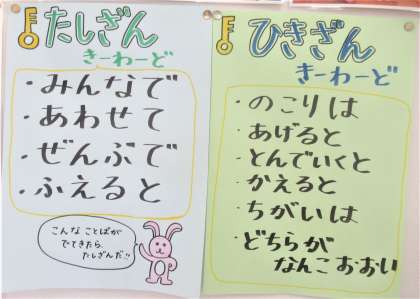 たしざん
きーわーど
・みんなで
・あわせて
・ぜんぶで
・ふえると
こんな ことばが
でてきたら
たしざんだ!!
ひきざん
きーわーど
・のこりは
・あげると
・とんでいくと
・かえると
・ちがいは
・どちらが
なんこ おおい